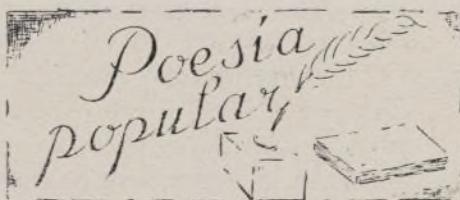 Poesía
popular